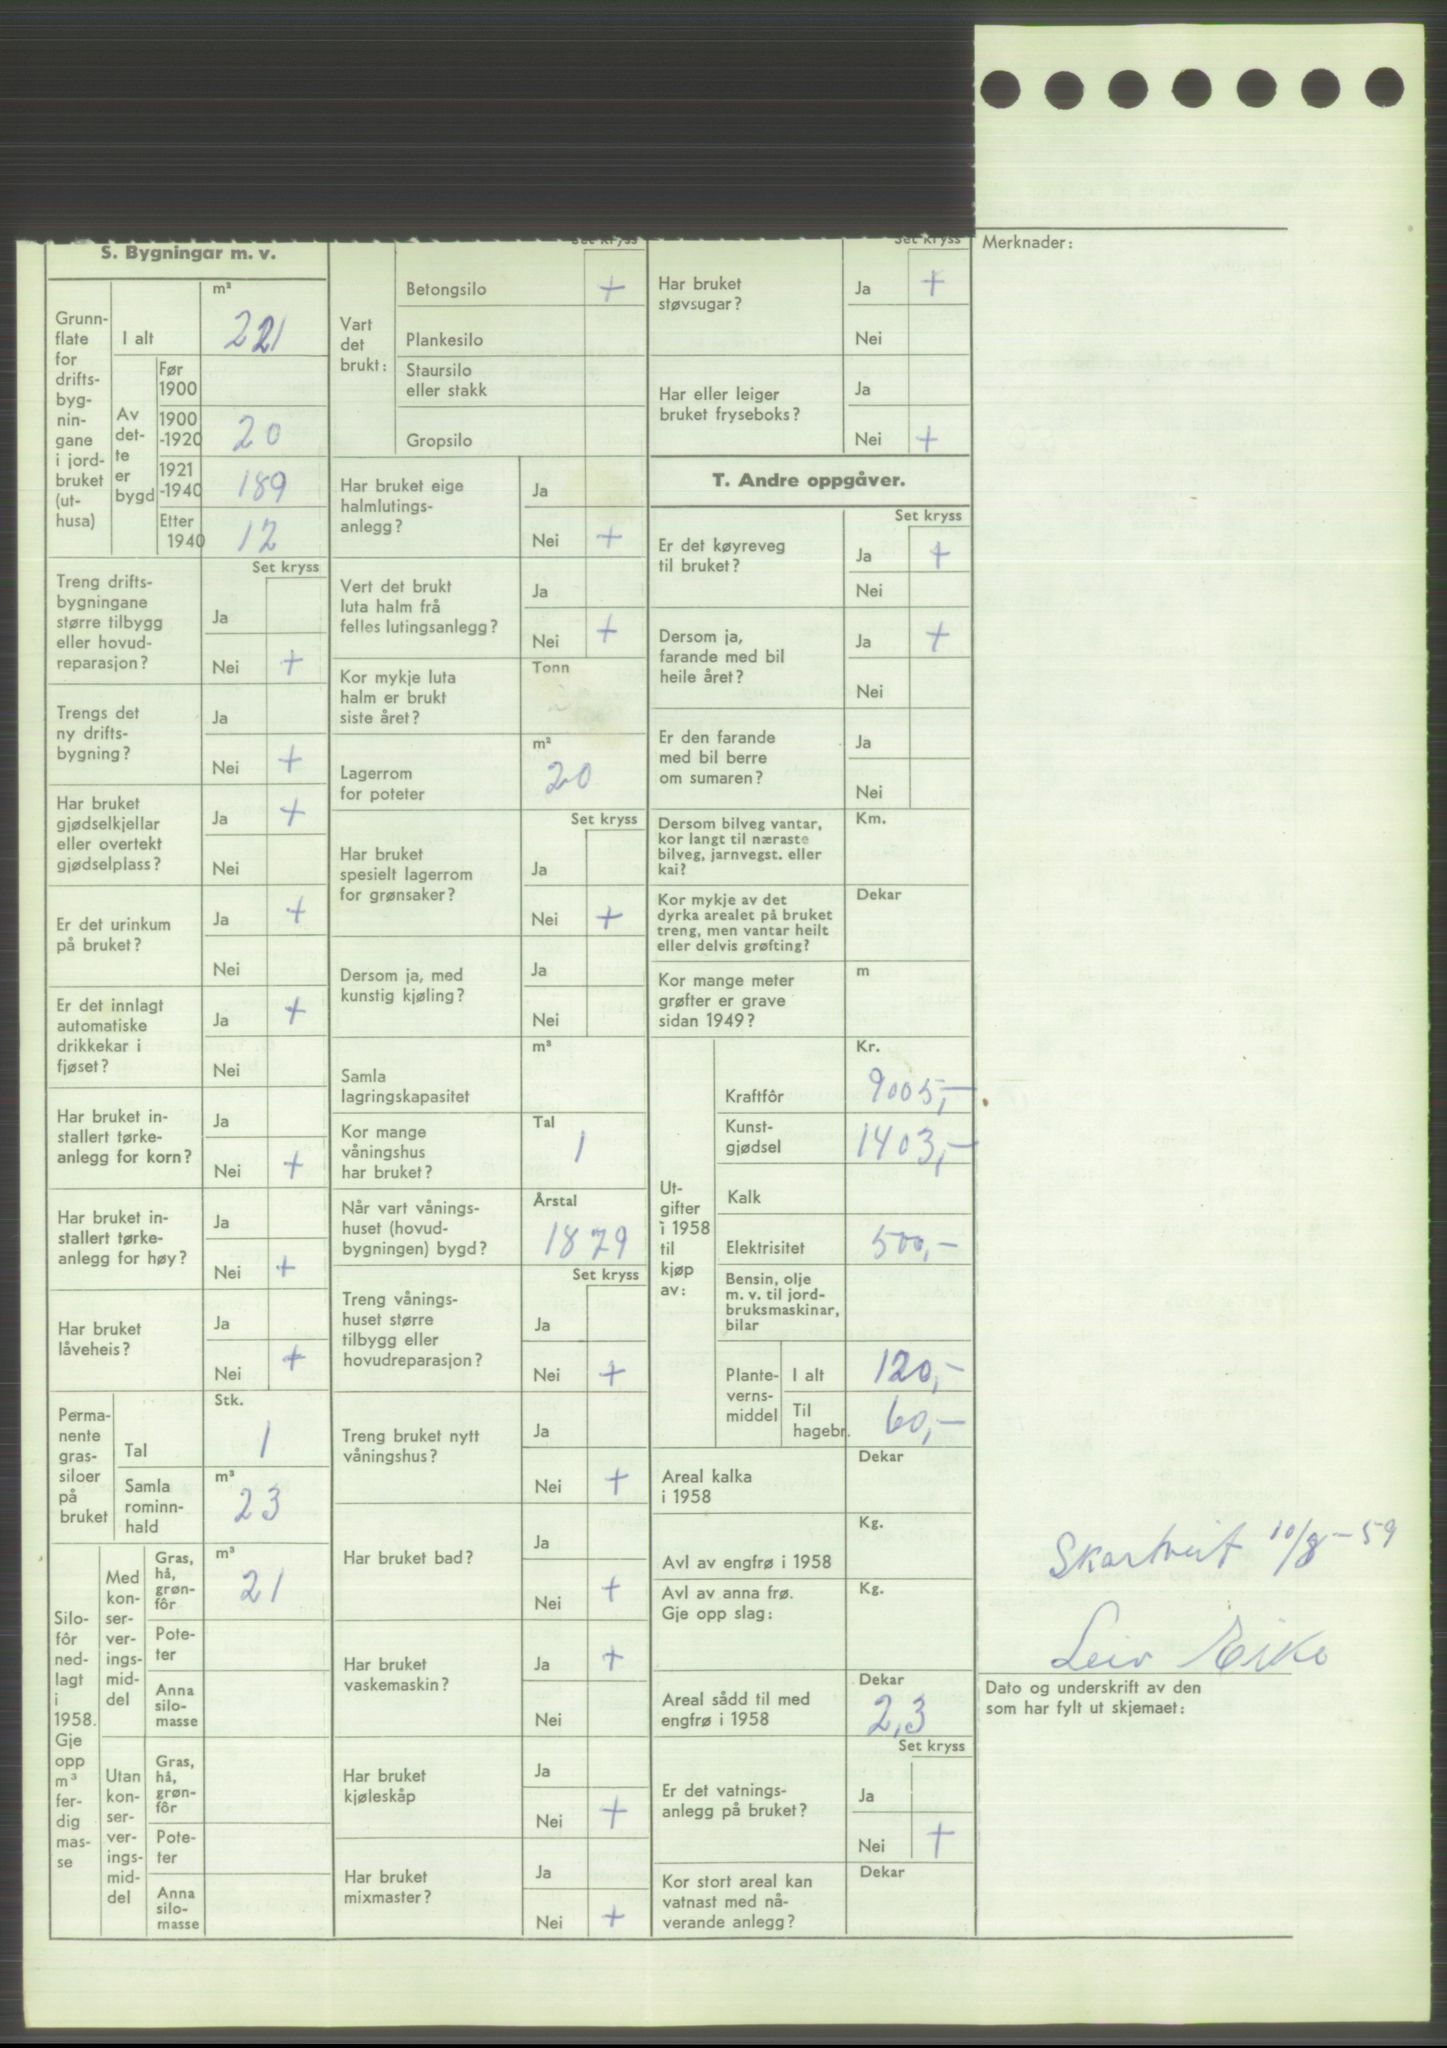 S. Bygningar m. v.
Grunn-
flate
for
drifts-
byg-
nin-
gane
i jord-
bruket
(ut-
husa)
m²
I alt
221
Av
det-
te
er
bygd
Før
1900
1900
-1920
20
1921
-1940
189
Etter
1940
12
Set kryss
Treng drifts-
bygningane
større tilbygg
eller hovud-
reparasjon?
Ja
Nei +
Trengs det
ny drifts-
bygning?
Ja
Nei +
Har bruket
gjødselkjellar
eller overtekt
gjødselplass?
Ja +
Nei
Er det urinkum
på bruket?
Ja +
Nei
Er det innlagt
automatiske
drikkekar i
fjøset?
Ja +
Nei
Har bruket in-
stallert tørke-
anlegg for korn?
Ja
Nei +
Har bruket in-
stallert tørke-
anlegg for høy?
Ja
Nei +
Har bruket
låveheis?
Ja
Nei +
Perma-
nente
gras-
siloer
på
bruket
Stk.
Tal
1
Samla
rominn-
hald
m³
23
Silo-
fôr
ned-
lagt
i
1958.
Gje
opp
m³
fer-
dig
mas-
se
Med
kon-
ser-
ver-
ings-
mid-
del
Gras,
hå,
grøn-
fôr
m³
21
Pote-
ter
Anna
silo-
masse
Utan
kon-
ser-
ver-
ings-
mid-
del
Gras,
hå,
grøn-
fôr
Pote-
ter
Anna
silo-
masse
Set kryss
Vart
det
brukt:
Betongsilo +
Plankesilo
Staursilo
eller stakk
Gropsilo
Har bruket eige
halmlutings-
anlegg?
Ja
Nei +
Vert det brukt
luta halm frå
felles lutingsanlegg?
Ja
Nei +
Kor mykje luta
halm er brukt
siste året?
Tonn
Lagerrom
for poteter
m²
20
Set kryss
Har bruket
spesielt lagerrom
for grønsaker?
Ja
Nei +
Dersom ja, med
kunstig kjøling?
Ja
Nei
Samla
lagringskapasitet
m³
Kor mange
våningshus
har bruket?
Tal
1
Når vart vånings-
huset (hovud-
bygningen) bygd?
Årstal
1879
Set kryss
Treng vånings-
huset større
tilbygg eller
hovudreparasjon?
Ja
Nei +
Treng bruket nytt
våningshus?
Ja
Nei +
Har bruket bad?
Ja
Nei +
Har bruket
vaskemaskin?
Ja +
Nei
Har bruket
kjøleskåp
Ja
Nei +
Har bruket
mixmaster?
Ja
Nei +
Set kryss
Har bruket
støvsugar?
Ja +
Nei
Har eller leiger
bruket fryseboks?
Ja
Nei +
T. Andre oppgåver.
Set kryss
Er det køyreveg
til bruket?
Ja +
Nei
Dersom ja,
farande med bil
heile året?
Ja +
Nei
Er den farande
med bil berre
om sumaren?
Ja
Nei
Dersom bilveg vantar,
kor langt til næraste
bilveg, jarnvegst. eller
kai?
Km.
Kor mykje av det
dyrka arealet på bruket
treng, men vantar heilt
eller delvis grøfting?
Dekar
Kor mange meter
grøfter er grave
sidan 1949?
m
Ut-
gifter
i 1958
til
kjøp
av:
Kr.
Kraftfôr
9005,—
Kunst-
gjødsel
1403,—
Kalk
Elektrisitet
500,—
Bensin, olje
m. v. til jord-
bruksmaskinar,
bilar
Plante-
verns-
middel
I alt
120,—
Til
hagebr.
60,—
Areal kalka
i 1958
Dekar
Avl av engfrø i 1958
Kg.
Avl av anna frø.
Gje opp slag:
Kg.
Areal sådd til med
engfrø i 1958
Dekar
2,3
Set kryss
Er det vatnings-
anlegg på bruket?
Ja
Nei +
Kor stort areal kan
vatnast med nå-
verande anlegg?
Dekar
Merknader:
Skartveit 10/8 - 59
Leiv Eike
Dato og underskrift av den
som har fylt ut skjemaet: